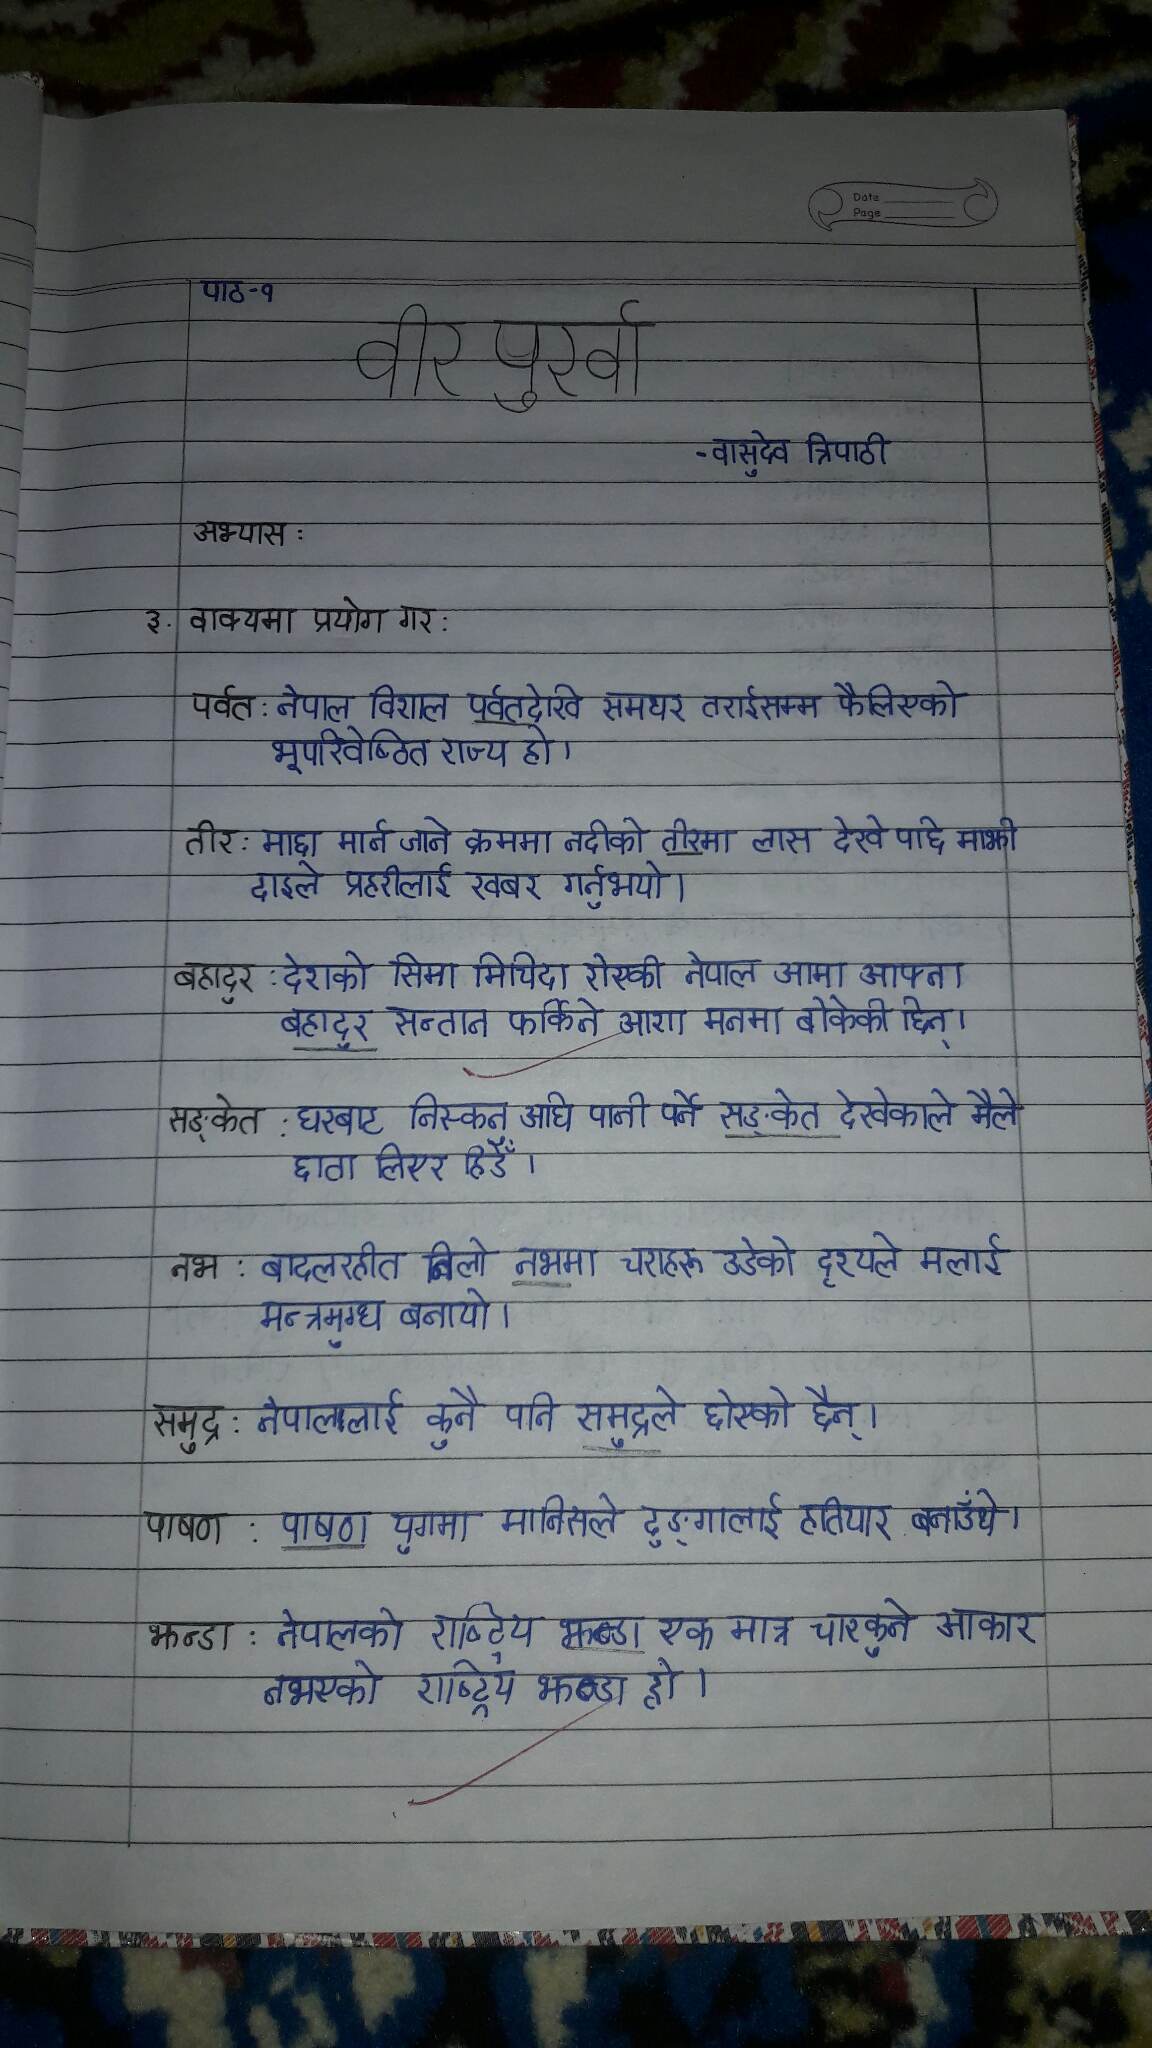 Date
Page
पाठ-१
वीर पुर्खा
-वासुदेव त्रिपाठी
अभ्यास :
३. वाक्यमा प्रयोग गर :
पर्वत : नेपाल विशाल पर्वतदेखि समथर तराईसम्म फैलिएको
भूपरिवेष्ठित राज्य हो ।
तीर : माछा मार्न जाने क्रममा नदीको तीरमा लास देखे पछि माझी
दाइले प्रहरीलाई खबर गर्नुभयो ।
बहादुर : देशको सिमा मिचिदा रोएकी नेपाल आमा आफ्ना
बहादुर सन्तान फर्किने आशा मनमा बोकेकी छिन् ।
सङ्केत : घरबाट निस्कन अघि पानी पर्ने सङ्केत देखेकाले मैले
छाता लिएर हिडेँ ।
नभ : बादलरहीत निलो नभमा चराहरू उडेको दृश्यले मलाई
मन्त्रमुग्ध बनायो ।
समुद्र : नेपाललाई कुनै पनि समुद्रले छोएको छैन् ।
पाषण : पाषण युगमा मानिसले ढुङ्गालाई हतियार बनाउँथे ।
झन्डा : नेपालको राष्ट्रिय झन्डा एक मात्र चारकुने आकार
नभएको राष्ट्रिय झन्डा हो ।